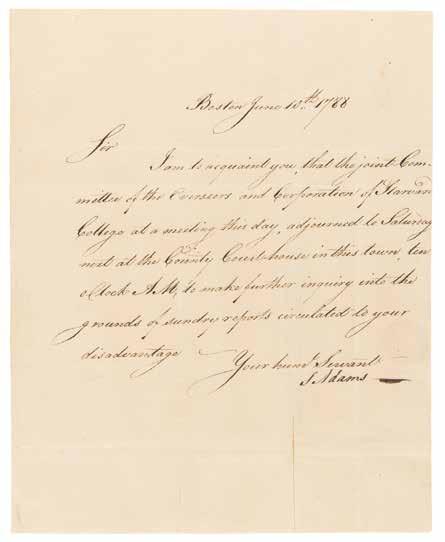 Boston June 10th. 1788
Sir
I am to acquaint you, that the joint Com-
mittee of the Overseers and Corporation of Harvard
College at a meeting this day, adjourned to Saturday
next at the County Court house in this town, ten
oClock AM, to make further inquiry into the
grounds of sundry reports circulated to your
disadvantage
Your humb Servant
S Adams